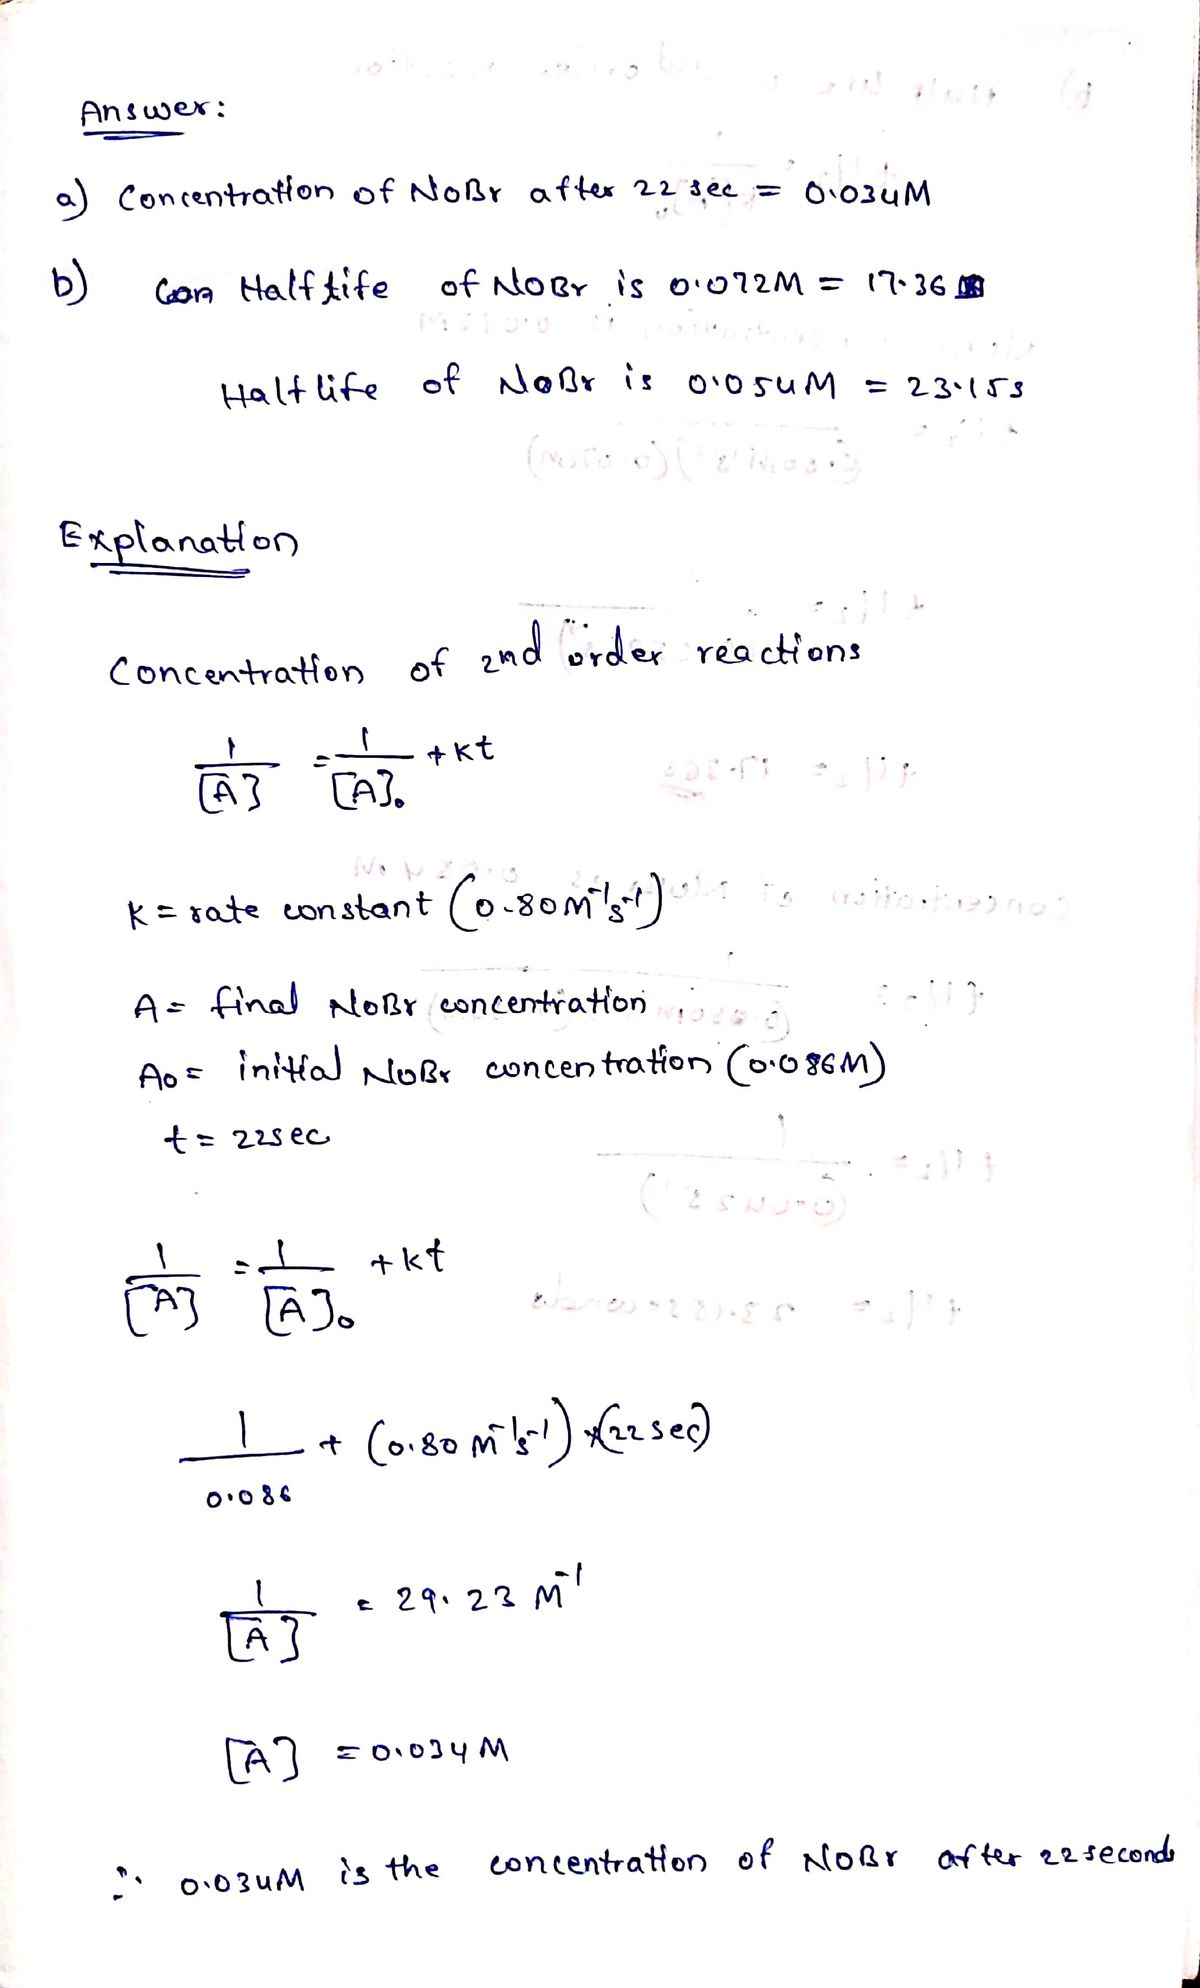 Answer:
a) Concentration of NoBr after 22 sec = 0.034M
b) Half life of NoBr is 0.072M = 17.36
Half life of NoBr is 0.054M = 23.15s
Explanation
Concentration of 2nd order reactions
1/[A] = 1/[A]₀ + kt
K = rate constant (0.80 M⁻¹s⁻¹)
A = final NoBr concentration
A0 = initial NoBr concentration (0.086M)
t = 22sec
1/[A] = 1/[A]₀ + kt
1/0.086 + (0.80 M⁻¹s⁻¹) × (22 sec)
1/[A] = 29.23 M⁻¹
[A] = 0.034 M
∴ 0.034M is the concentration of NoBr after 22 seconds